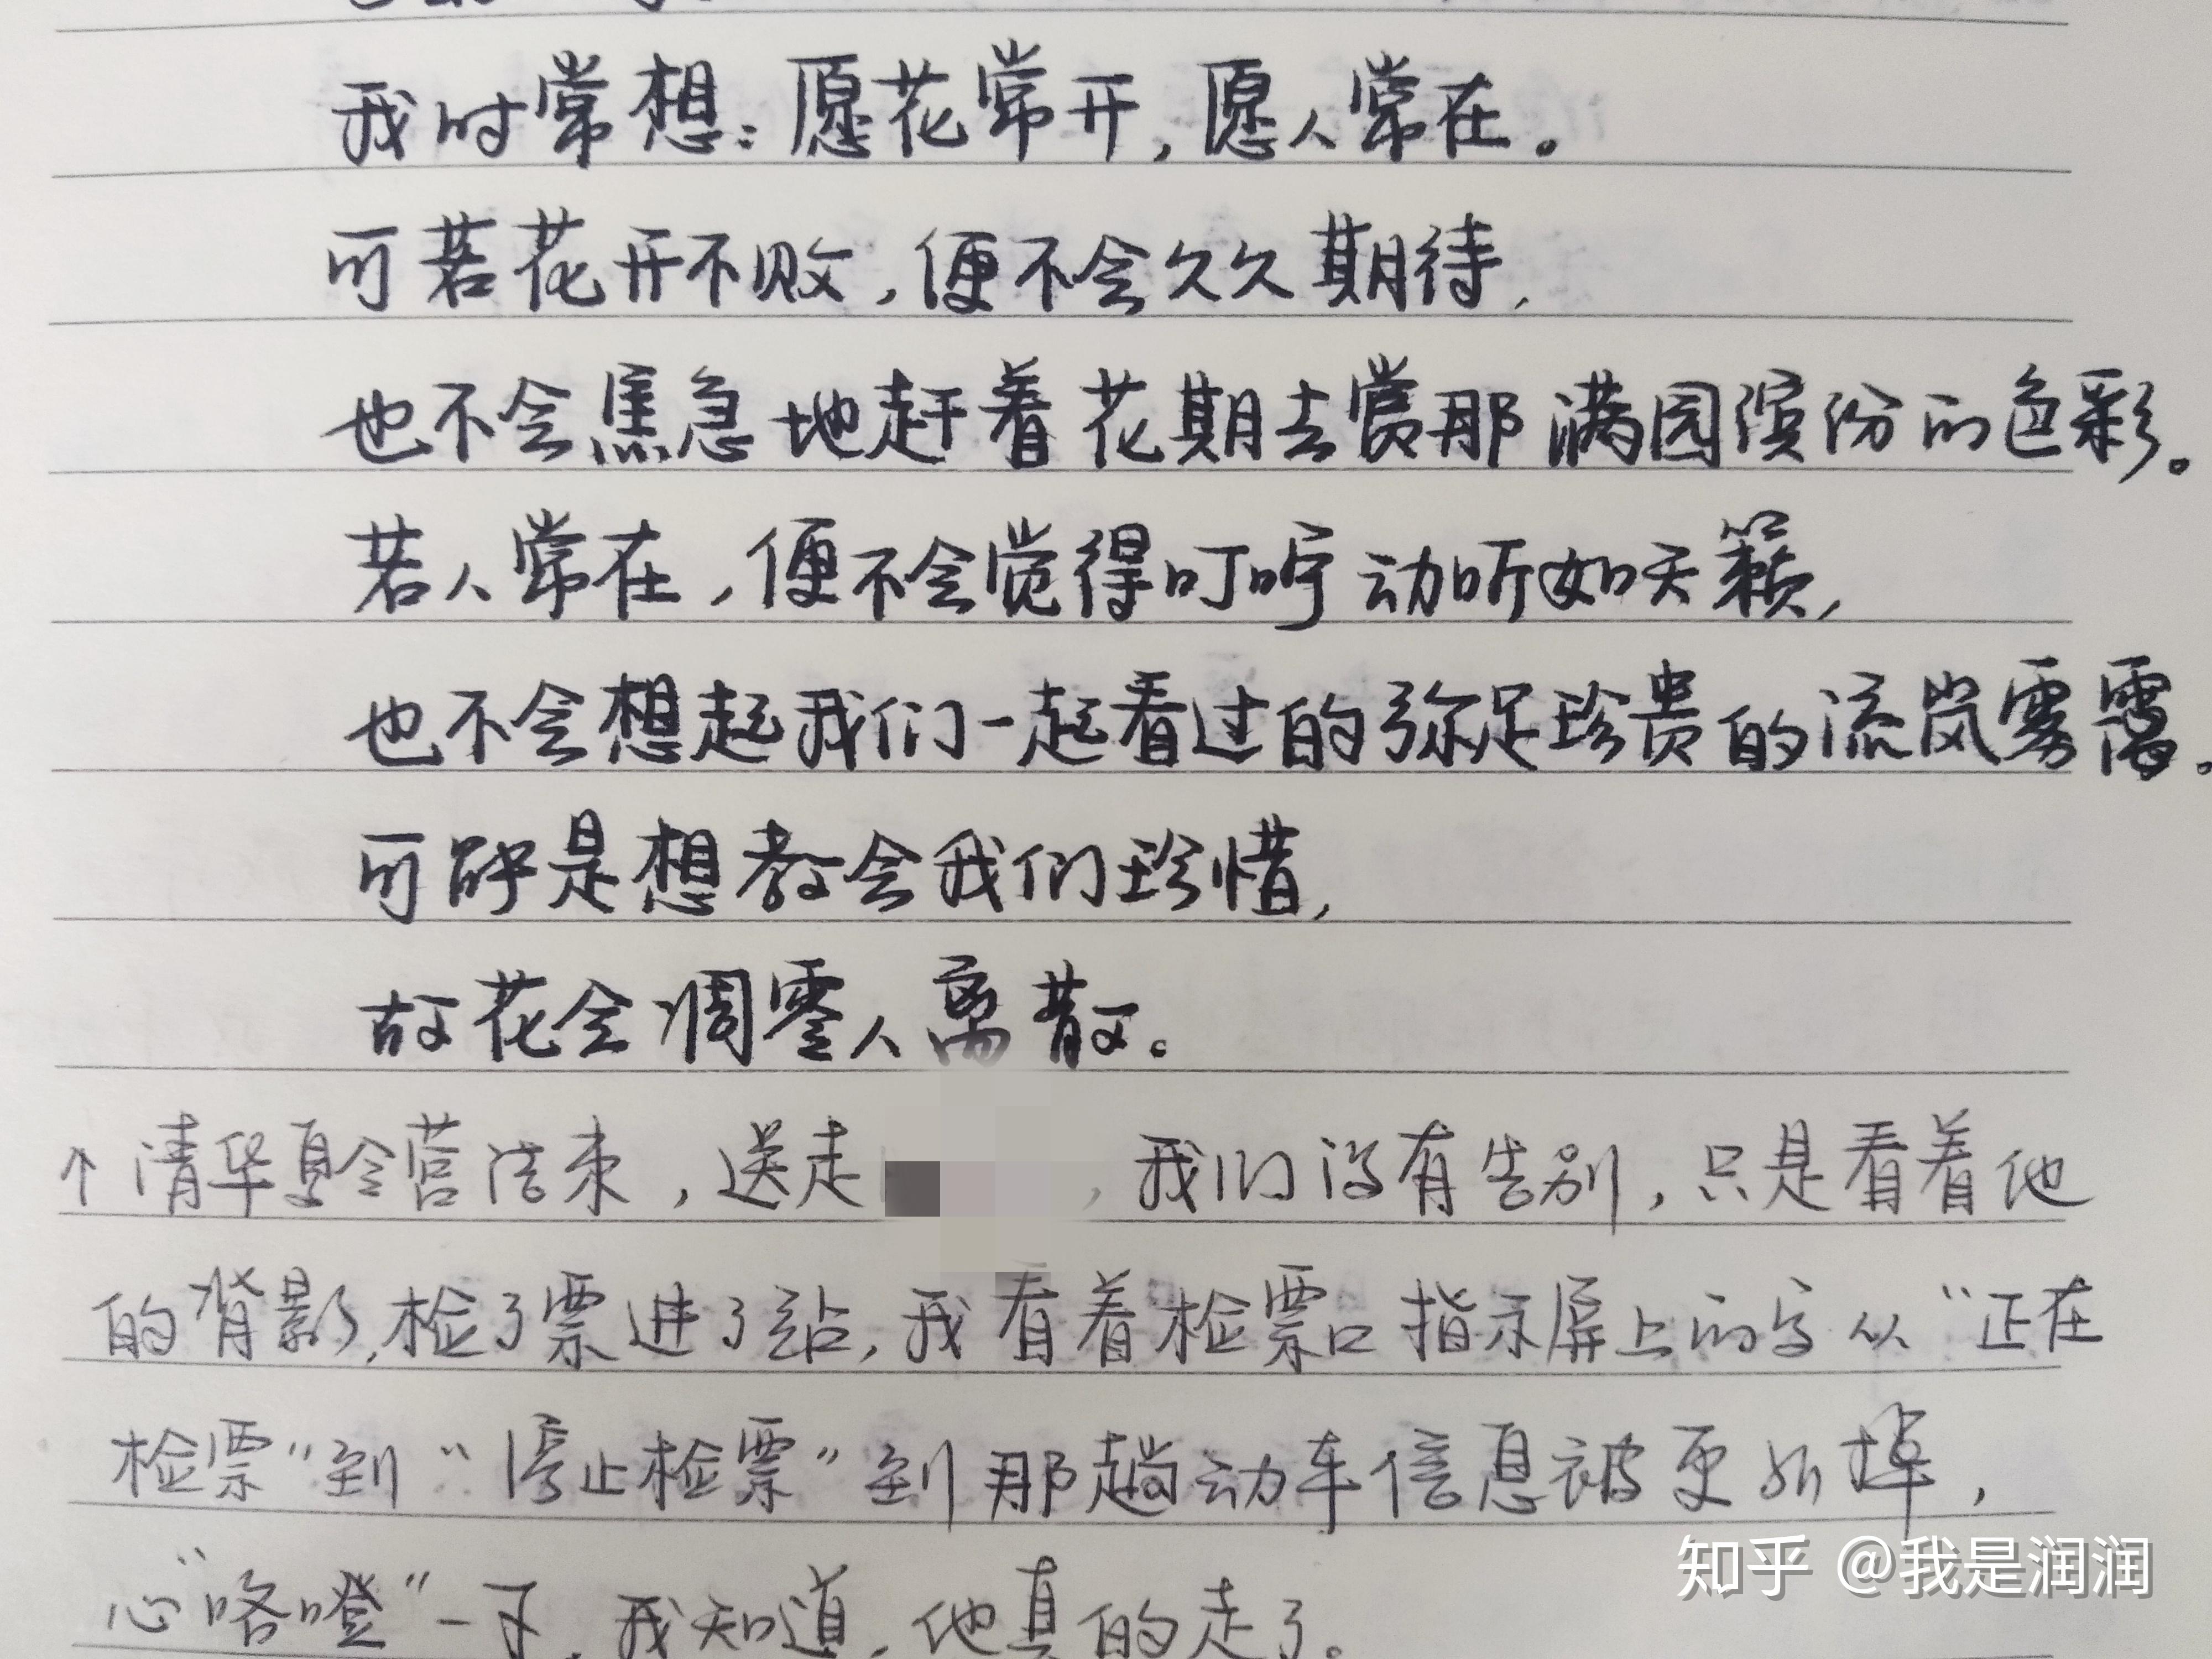 我时常想：愿花常开，愿人常在。
可若花开不败，便不会久久期待，
也不会焦急地赶着花期去赏那满园缤纷的色彩。
若人常在，便不会觉得叮咛动听如天籁，
也不会想起我们一起看过的弥足珍贵的流岚雾霭。
可能是想教会我们珍惜，
故花会凋零人离散。
↑清华夏令营结束，送走，我们没有告别，只是看着他
的背影，检了票进了站，我看着检票口指示屏上的字从“正在
检票”到“停止检票”到那趟动车信息被更新掉，
心“咯噔”一下，我知道，他真的走了。
知乎 @我是润润